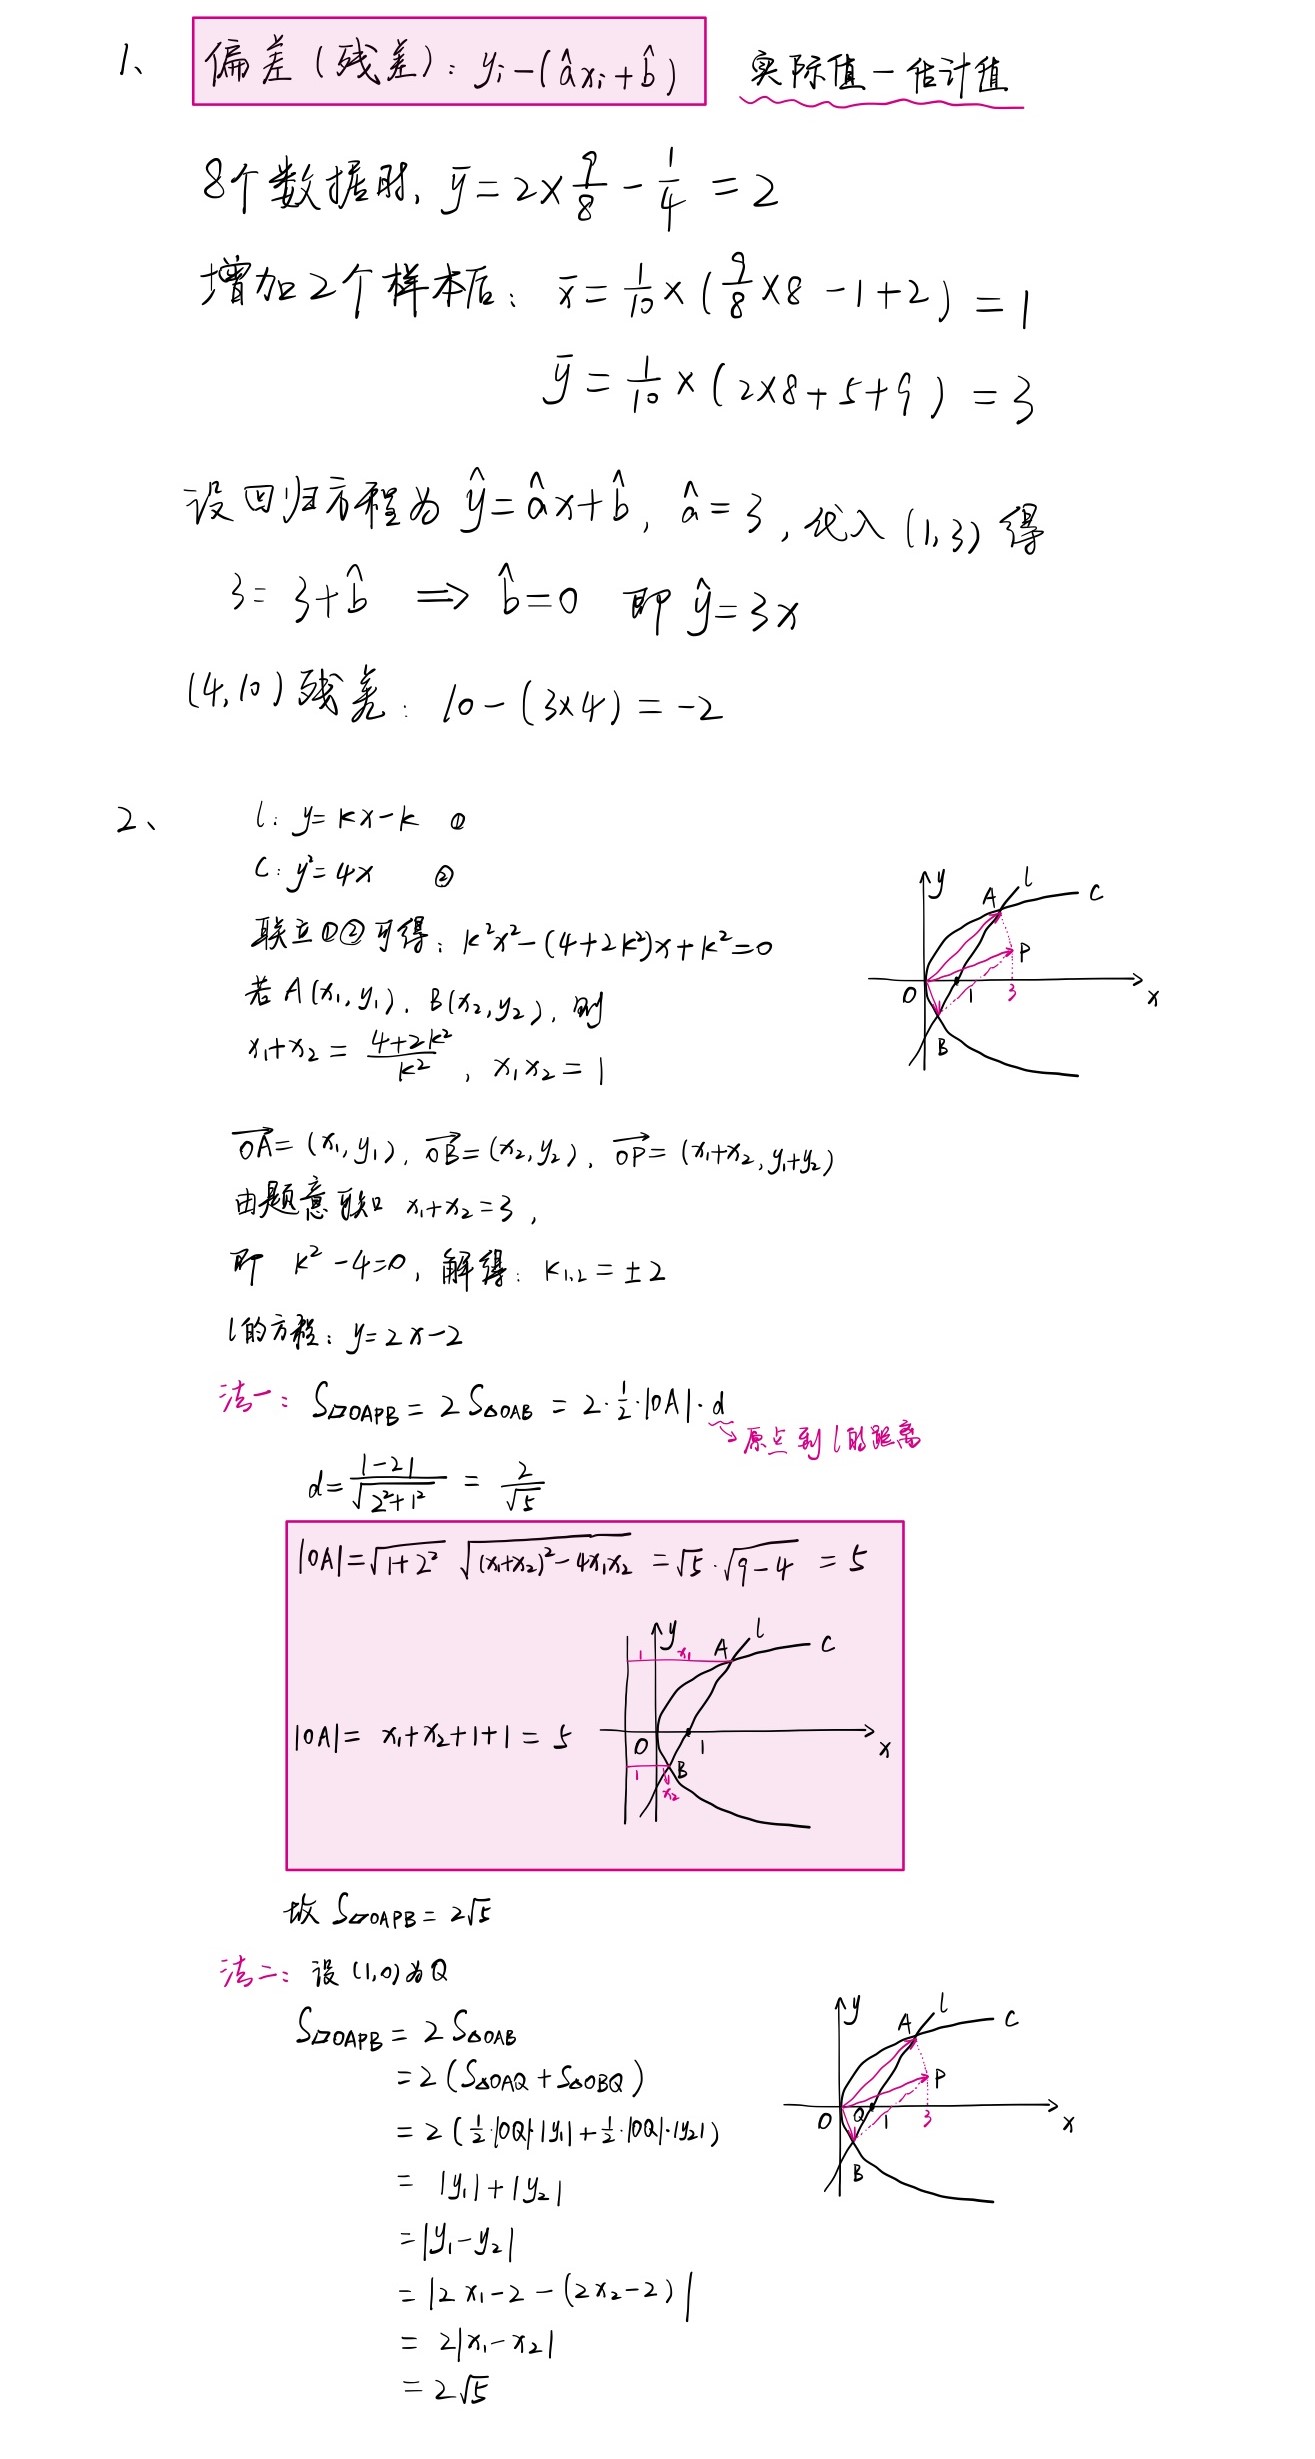 1、 偏差(残差): yᵢ-(âxᵢ+b̂) 实际值-估计值
8个数据时, ȳ=2×9/8-1/4=2
增加2个样本后: x̄=1/10×(9/8×8-1+2)=1
ȳ=1/10×(2×8+5+9)=3
设回归方程为 ŷ=âx+b̂, â=3, 代入(1,3)得
3=3+b̂ ⟹ b̂=0 即 ŷ=3x
(4,10)残差: 10-(3×4)=-2
2、 l: y=kx-k ①
C: y²=4x ②
联立①②可得: k²x²-(4+2k²)x+k²=0
若A(x₁,y₁), B(x₂,y₂), 则
x₁+x₂=(4+2k²)/k², x₁x₂=1
y A l C P O 1 3 x B
OA→=(x₁,y₁), OB→=(x₂,y₂), OP→=(x₁+x₂,y₁+y₂)
由题意可知 x₁+x₂=3,
即 k²-4=0, 解得: k₁,₂=±2
l的方程: y=2x-2
法一: S▱OAPB=2S△OAB=2·1/2·|OA|·d
原点到l的距离
d=|-2|/√(2²+1²)=2/√5
|OA|=√(1+2²) √((x₁+x₂)²-4x₁x₂)=√5·√(9-4)=5
|OA|=x₁+x₂+1+1=5
y l A C 1 x₁ O 1 x 1 B x₂
故 S▱OAPB=2√5
法二: 设(1,0)为Q
S▱OAPB=2S△OAB
=2(S△OAQ+S△OBQ)
=2(1/2·|OQ|·|y₁|+1/2·|OQ|·|y₂|)
=|y₁|+|y₂|
=|y₁-y₂|
=|2x₁-2-(2x₂-2)|
=2|x₁-x₂|
=2√5
y A l C P O Q 1 3 x B